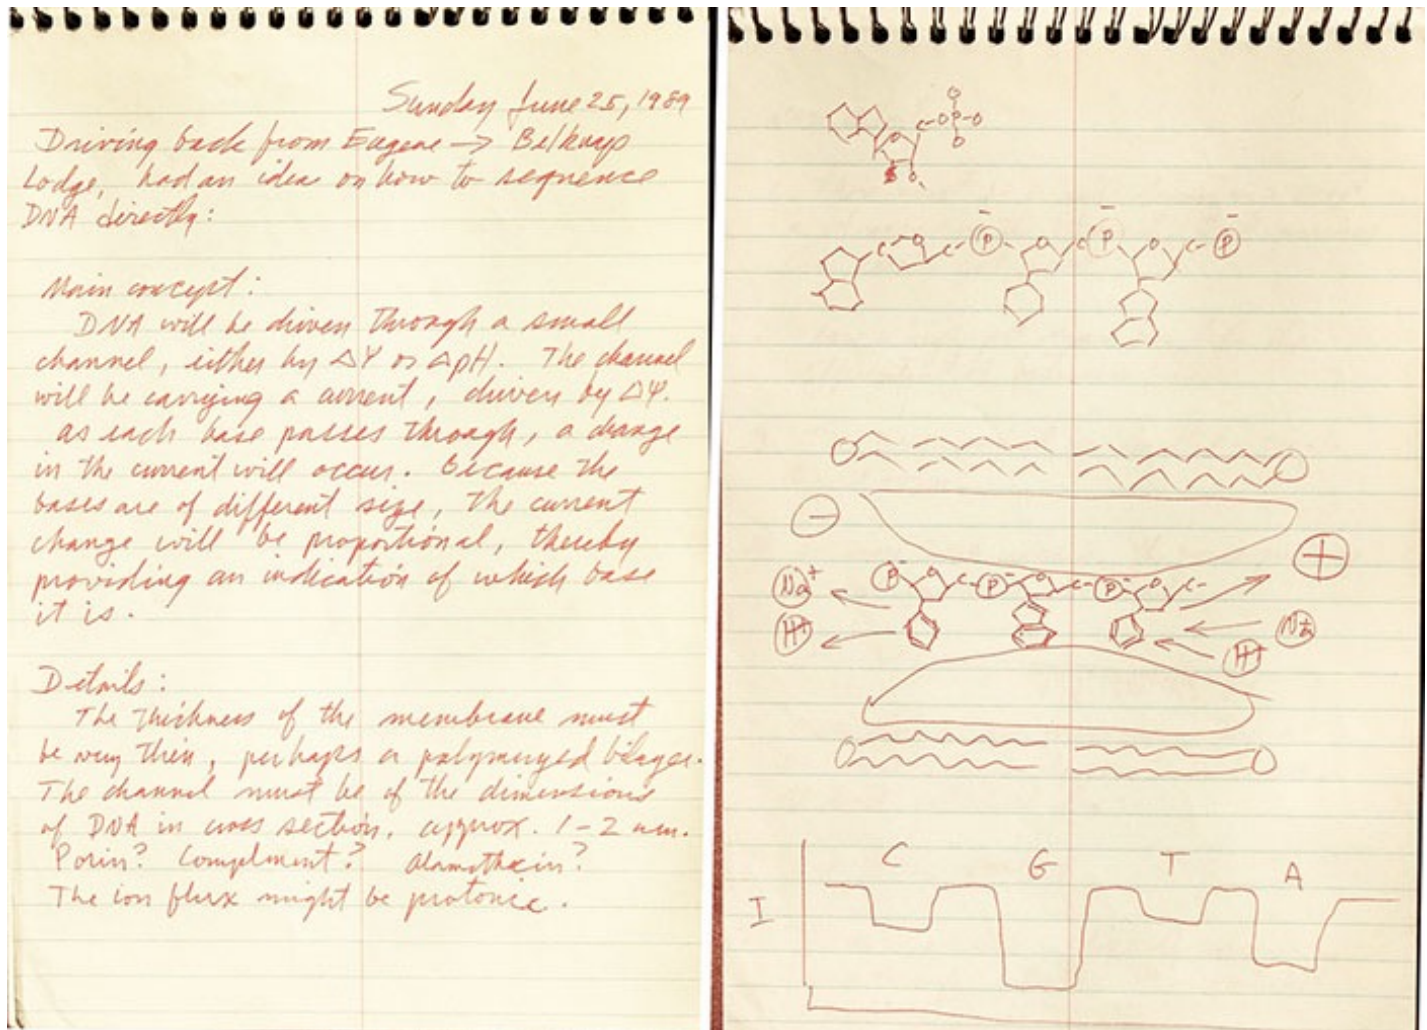 Sunday June 25, 1989
Driving back from Eugene → Belknap
Lodge, had an idea on how to sequence
DNA directly:
Main concept:
DNA will be driven through a small
channel, either by ΔΨ or ΔpH. The channel
will be carrying a current, driven by ΔΨ.
As each base passes through, a change
in the current will occur. Because the
bases are of different size, the current
change will be proportional, thereby
providing an indication of which base
it is.
Details:
The thickness of the membrane must
be very thin, perhaps a polymerized bilayer.
The channel must be of the dimensions
of DNA in cross section, approx. 1-2 nm.
Porin? Compliment? Alamethicin?
The ion flux might be protonic.
O
C-O-P-O
O
O
O.
- - -
C O C - P - O C P O C - P
-
+
P O C - P - O C - P - O C -
Na+
H+
Na+
H+
C G T A
I